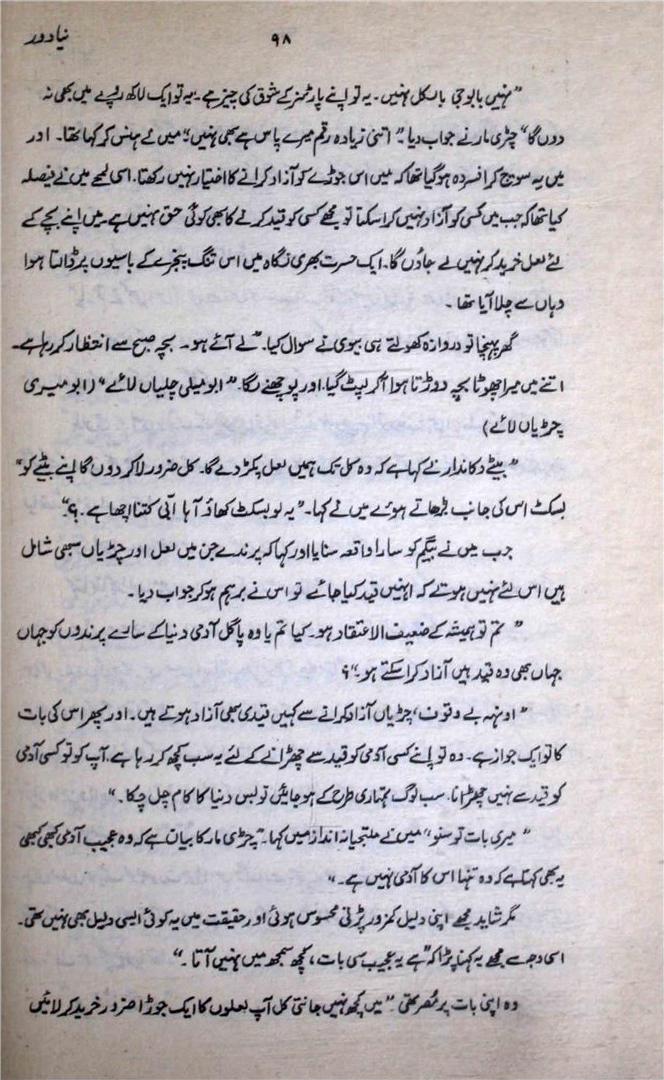 نیا دور
۹۸
”نہیں بابوجی بالکل نہیں۔ یہ تو اپنے پارٹنر کے شوق کی چیز ہے۔ یہ تو ایک لاکھ روپے میں بھی نہ
دوں گا“ چڑی مار نے جواب دیا۔ ”اتنی زیادہ رقم میرے پاس ہے بھی نہیں“ میں نے ہنس کر کہا تھا۔ اور
میں یہ سوچ کر افسردہ ہو گیا تھا کہ میں اس جوڑے کو آزاد کرانے کا اختیار نہیں رکھتا۔ اسی لمحے میں نے فیصلہ
کیا تھا کہ جب میں کسی کو آزاد نہیں کرا سکتا تو مجھے کسی کو قید کرنے کا بھی کوئی حق نہیں ہے۔ میں اپنے بچے کے
لئے لعل خرید کر نہیں لے جاؤں گا۔ ایک حسرت بھری نگاہ میں اس تنگ پنجرے کے باسیوں پر ڈالتا ہوا
وہاں سے چلا آیا تھا۔
گھر پہنچا تو دروازہ کھولتے ہی بیوی نے سوال کیا۔ ”لے آئے ہو۔ بچہ صبح سے انتظار کر رہا ہے۔
اتنے میں میرا چھوٹا بچہ دوڑتا ہوا آ کر لپٹ گیا۔ اور پوچھنے لگا۔ ”ابو میلی چلیاں لائے“ (ابو میری
چڑیاں لائے)
”بیٹے دکاندار نے کہا ہے کہ وہ کل تک ہمیں لعل پکڑ دے گا۔ کل ضرور لا کر دوں گا اپنے بیٹے کو“
بسکٹ اس کی جانب بڑھاتے ہوئے میں نے کہا۔ ”یہ لو بسکٹ کھاؤ آہا ابّی کتنا اچھا ہے۔ ؟“
جب میں نے بیگم کو سارا واقعہ سنایا اور کہا کہ پرندے جن میں لعل اور چڑیاں سبھی شامل
ہیں اس لئے نہیں ہوتے کہ انہیں قید کیا جائے تو اس نے برہم ہو کر جواب دیا۔
”تم تو ہمیشہ کے ضعیف الاعتقاد ہو۔ کیا تم یا وہ پاگل آدمی دنیا کے سارے پرندوں کو جہاں
جہاں بھی وہ قید ہیں آزاد کرا سکتے ہو۔“؟
”اونہہ بے وقوف، چڑیاں آزاد کرانے سے کہیں قیدی بھی آزاد ہوتے ہیں۔ اور پھر اس کی بات
کا تو ایک جواز ہے۔ وہ تو اپنے کسی آدمی کو قید سے چھڑانے کے لئے یہ سب کچھ کر رہا ہے۔ آپ کو تو کسی آدمی
کو قید سے نہیں چھڑانا۔ سب لوگ تمہاری طرح کے ہو جائیں تو بس دنیا کا کام چل چکا۔“
”میری بات تو سنو“ میں نے ملتجیانہ انداز میں کہا۔ ”چڑی مار کا بیان ہے کہ وہ عجیب آدمی کبھی کبھی
یہ بھی کہتا ہے کہ وہ تنہا اس کا آدمی نہیں ہے۔“
مگر شاید مجھے اپنی دلیل کمزور پڑتی محسوس ہوئی اور حقیقت میں یہ کوئی ایسی دلیل بھی نہیں تھی۔
اسی وجہ سے مجھے یہ کہنا پڑا کہ ”ہے یہ عجیب سی بات، کچھ سمجھ میں نہیں آتا۔“
وہ اپنی بات پر مُصر تھی۔ ”میں کچھ نہیں جانتی کل آپ لعلوں کا ایک جوڑا ضرور خرید کر لائیں